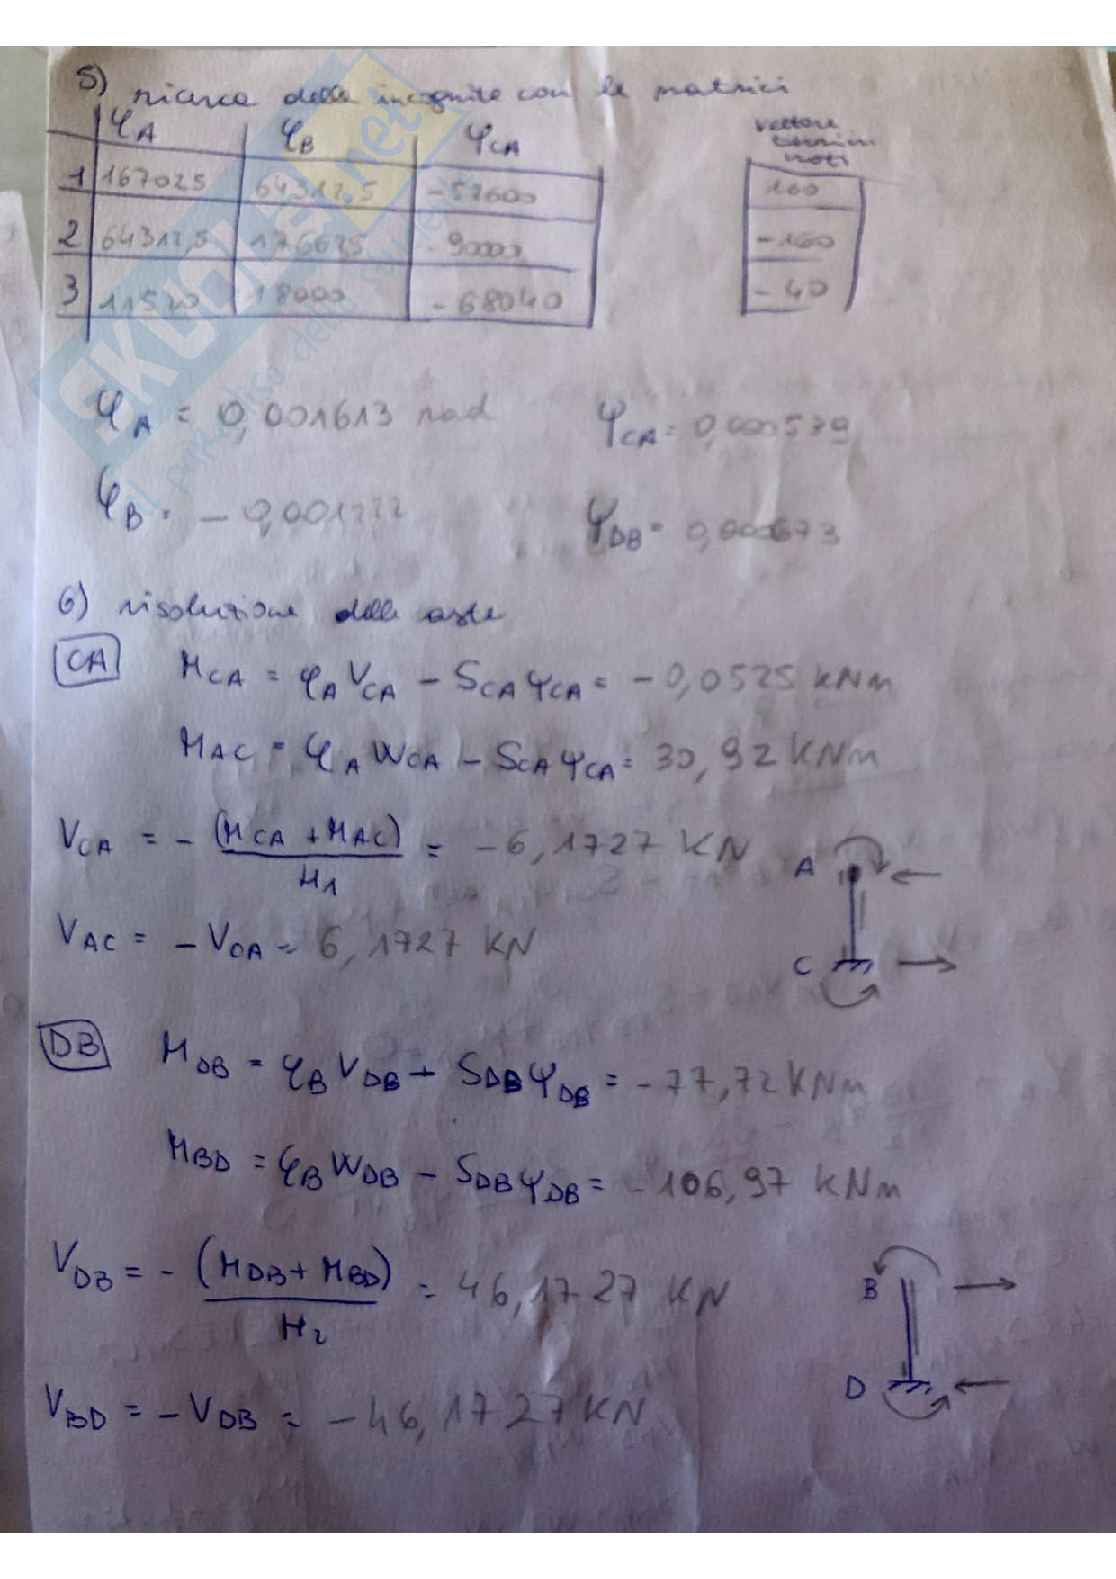 5) ricerca delle incognite con le matrici
φA φB ψCA vettore termini noti
1 167025 64312,5 -57600 160
2 64312,5 176625 -90000 -160
3 11520 18000 -68040 -40
φA = 0,001613 rad ψCA = 0,000539
φB = -0,001222 ψDB = 0,000673
6) risoluzione delle aste
CA MCA = φA VCA - SCA ψCA = -0,0525 kNm
MAC = φA WCA - SCA ψCA = 30,92 kNm
VCA = - (MCA + MAC) / H1 = -6,1727 KN
A
VAC = - VCA = 6,1727 KN
C
DB MDB = φB VDB - SDB ψDB = -77,72 KNm
MBD = φB WDB - SDB ψDB = -106,97 KNm
VDB = - (MDB + MBD) / H2 = 46,1727 KN
B
D
VBD = - VDB = -46,1727 KN
SKUOLA.net